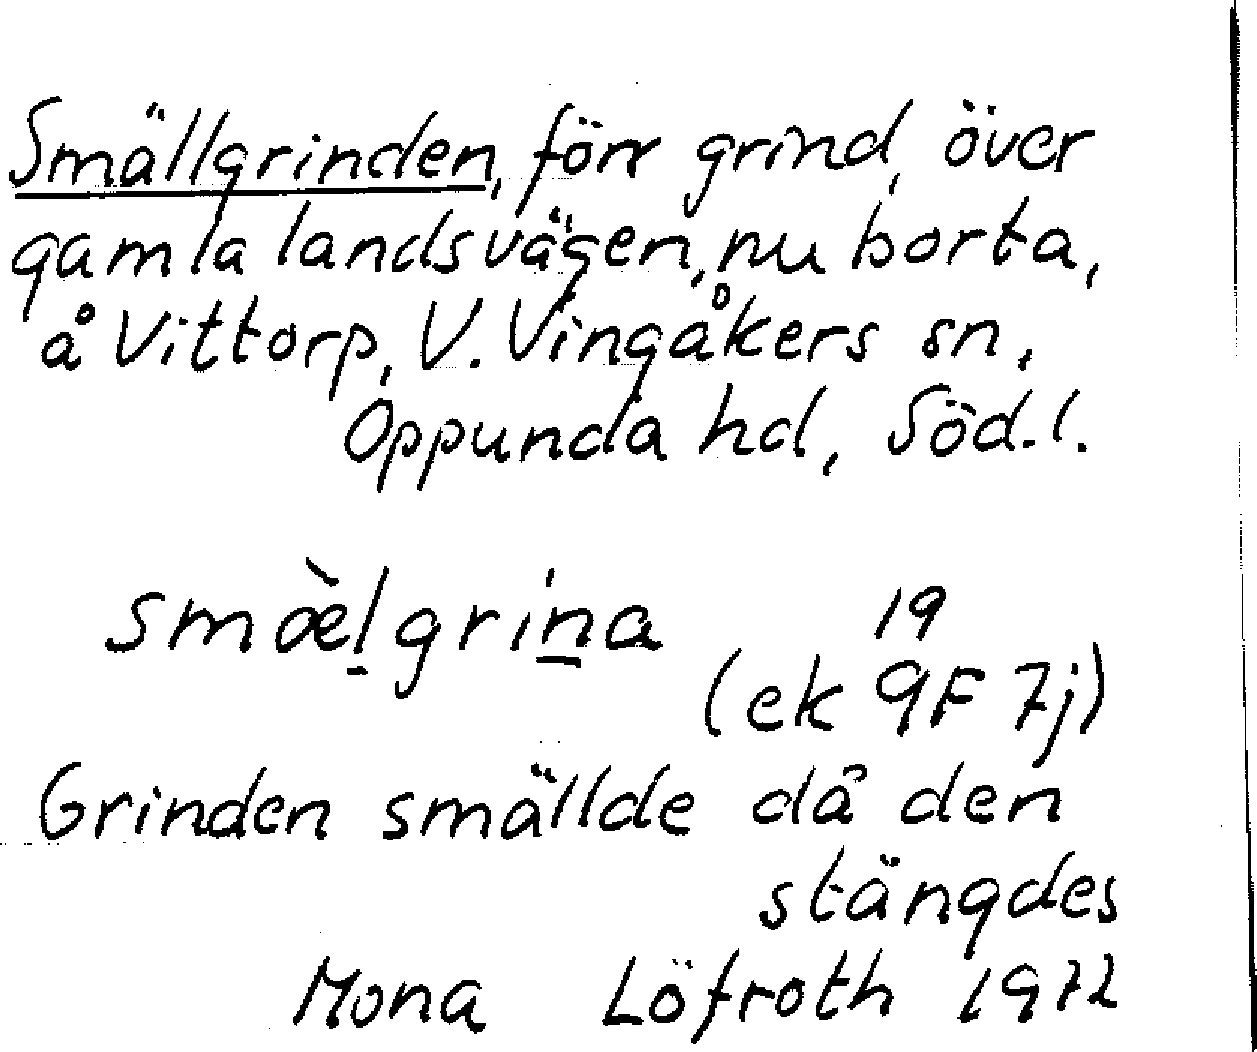 Smällgrinden, förr grind, över
gamla landsvägen, nu borta,
å Vittorp, V. Vingåkers sn,
Oppunda hd, Söd.l.
smæ̀lgrina
19
(ek 9F 7j)
Grinden smällde då den
stängdes
Mona Löfroth 1972